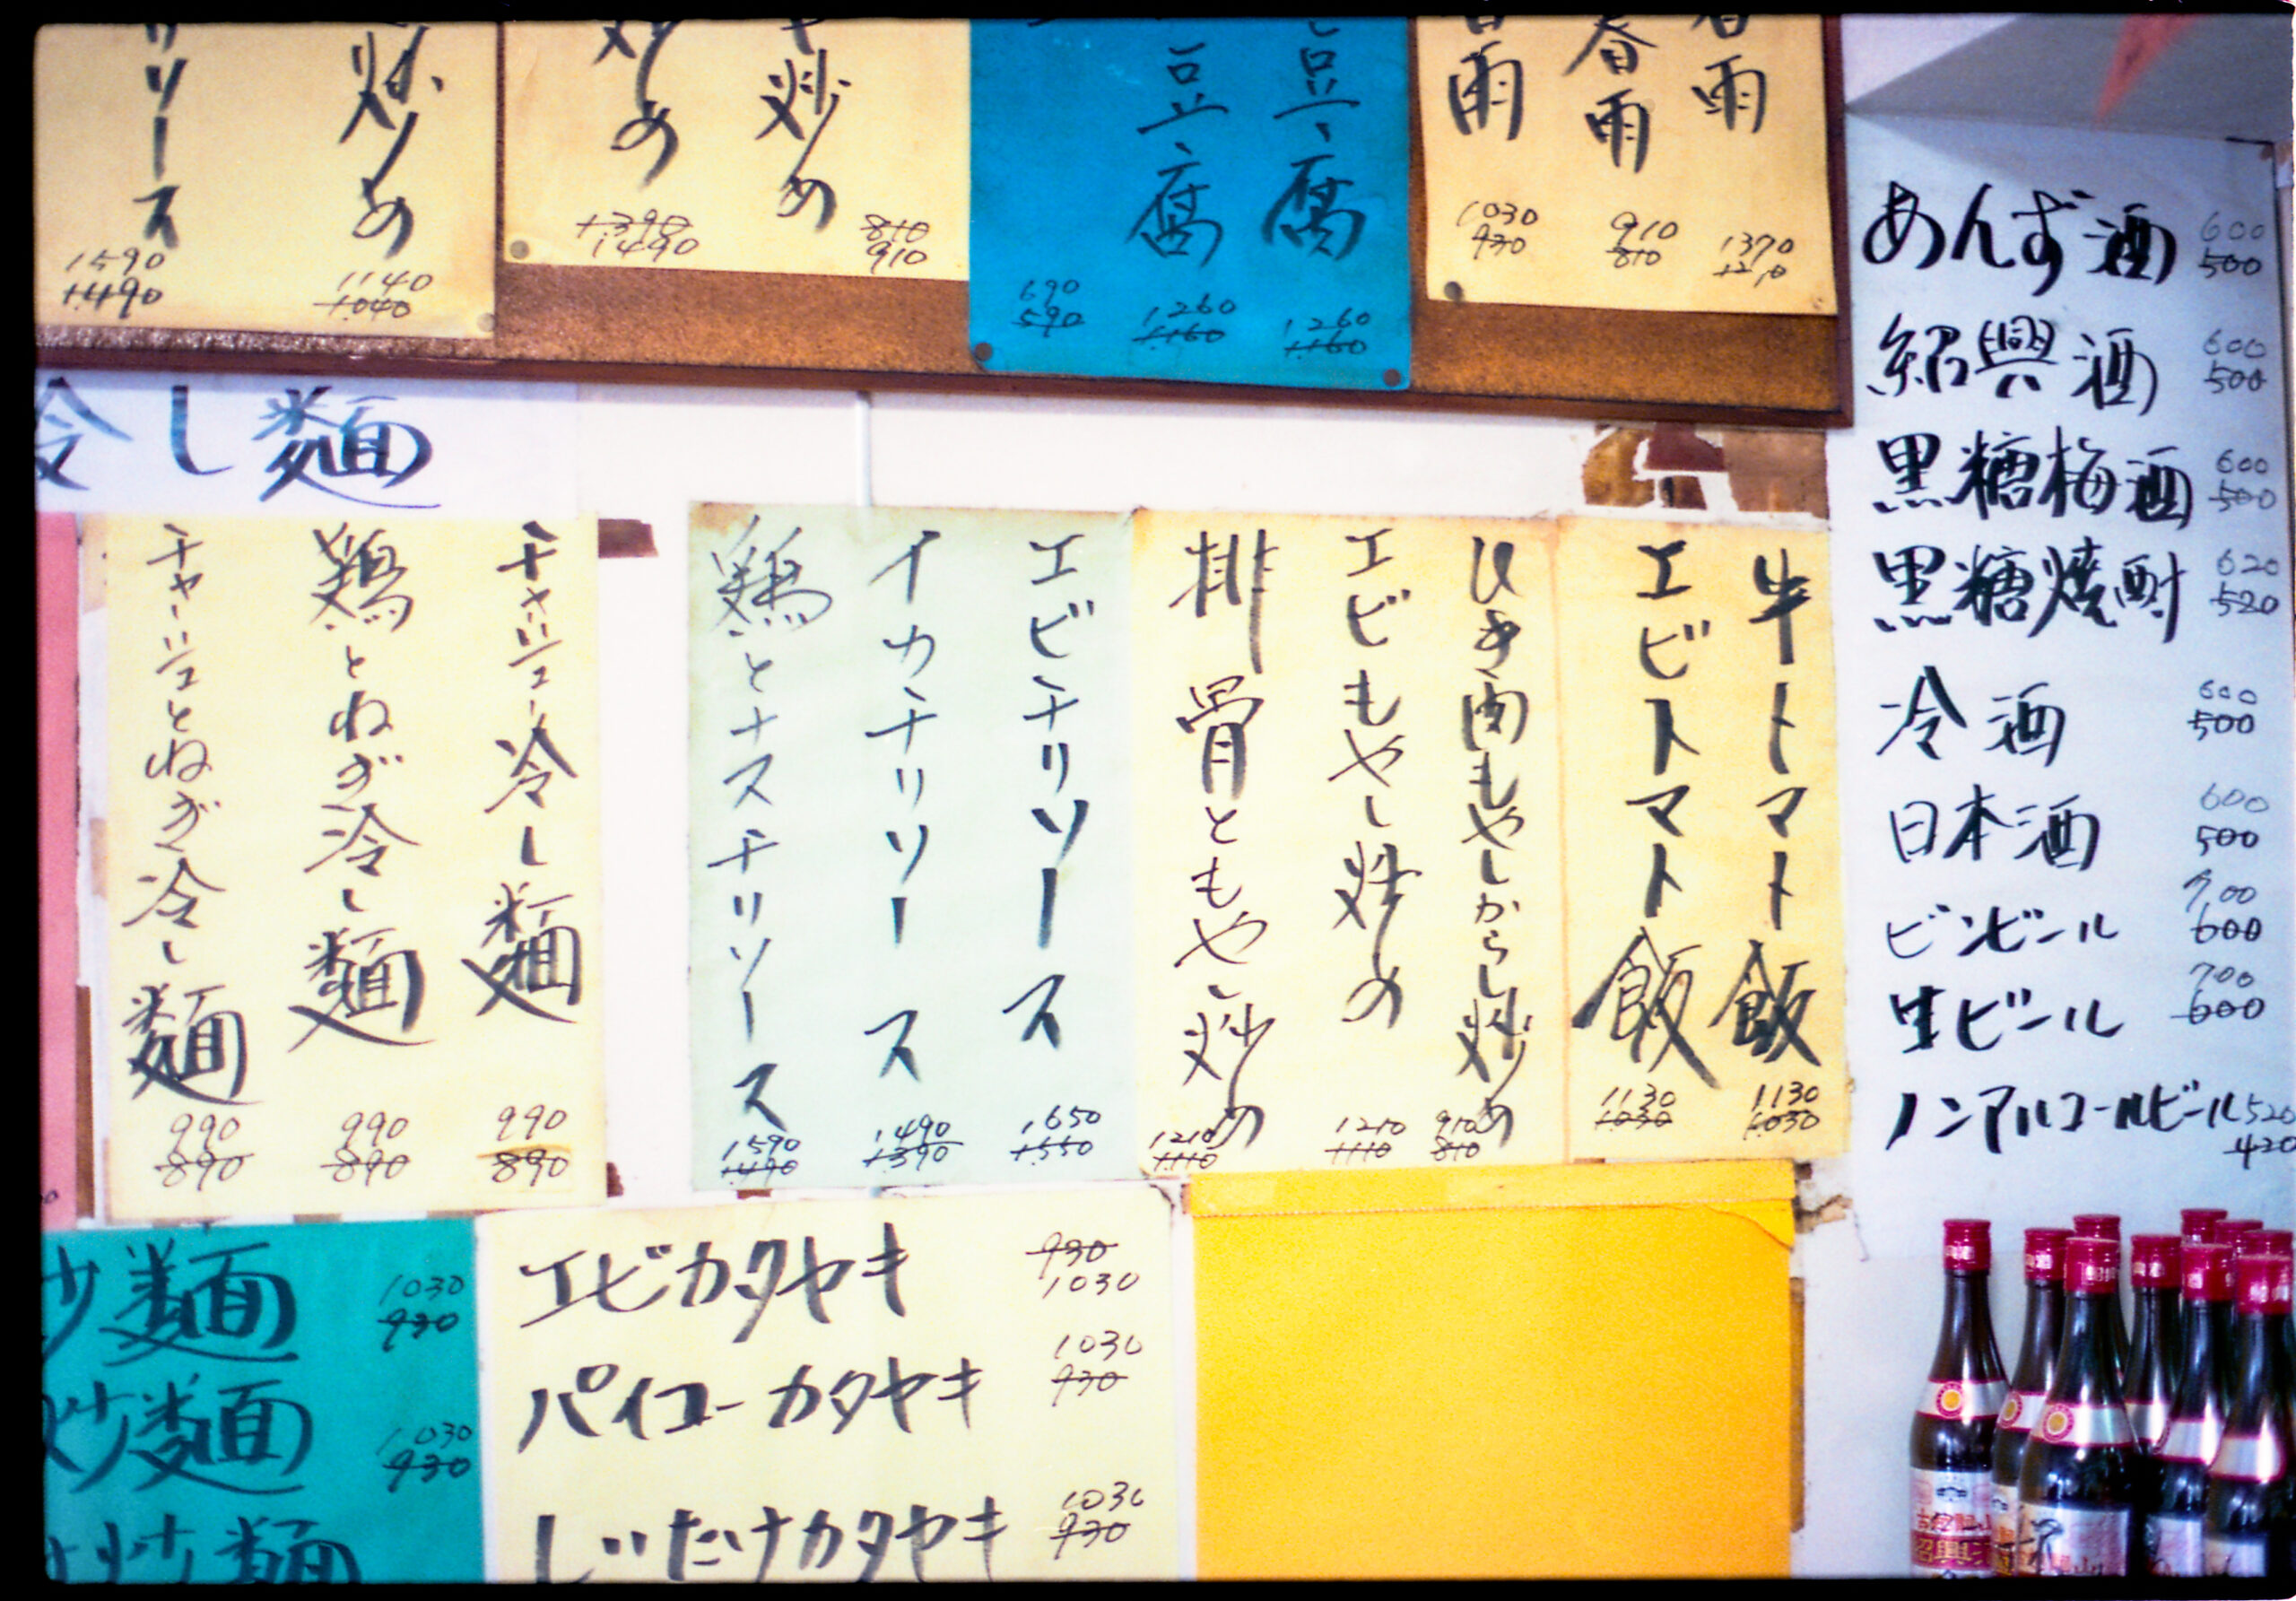 リソース
1590
1490
炒め
1140
1040
炒め
1390
1490
炒め
810
910
690
590
豆腐
1260
1160
豆腐
1260
1160
雨
1030
930
春雨
910
810
春雨
1370
冷し麺
チャーシューとねぎ冷し麺
990
890
鶏とねぎ冷し麺
990
890
チャーシュー冷し麺
990
890
鶏とナスチリソース
1590
1490
イカチリソース
1490
1390
エビチリソース
1650
1550
排骨ともやし炒め
1210
1110
エビもやし炒め
1210
1110
ひき肉もやしからし炒め
910
810
エビトマト飯
1130
1030
牛トマト飯
1130
1030
あんず酒 600
500
紹興酒 600
500
黒糖梅酒 600
500
黒糖焼酎 620
520
冷酒 600
500
日本酒 600
500
ビンビール 700
600
生ビール 700
600
ノンアルコールビール 520
420
炒麺 1030
930
炒麺 1030
930
炒麺
エビカタヤキ 930
1030
パイコーカタヤキ 1030
930
しいたけカタヤキ 1030
930